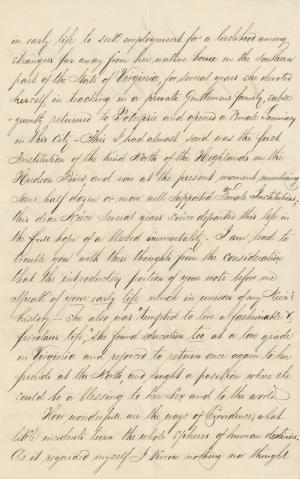 in early life to seek employment for a livelihood among
strangers far away from her native home in the southern
part of the State of Virginia, for several years she devoted
herself in teaching in a private Gentlemans family, subse-
quently returned to and opened a Female Seminary
in this City - This I had almost said was the first
Institution of the kind North of the Highlands on the
Hudson River, and now at the present moment numbering
some half dozen or more well supported Female Institutions,
this dear Niece Several years since departed this life in
the full hope of a blessed immortality. I am lead to
trouble you with these thoughts from the consideration
that the introductory portion of your note before me
speak of your early life which in unison of my Niece's
history - she also was tempted to live a fashionable &
frivolous life," she found education too, at a low grade
in Virginia and rejoiced to return once again to the
friends at the North, and sought a position where she
could be a blessing to her Sex and to the world
How wonderfull are the ways of Providence, what
little incidents turn the whole spheres of human destinies.
As it regarded myself I know nothing nor thought